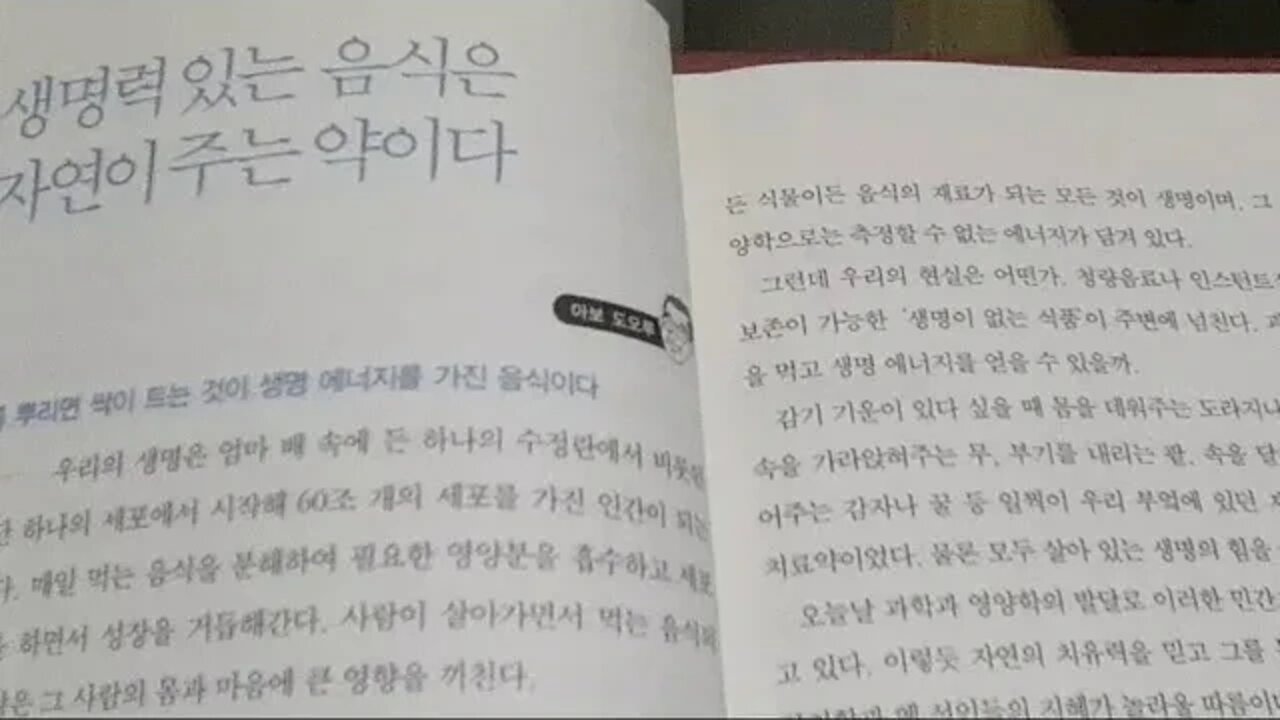 생명력 있는 음식은
자연이 주는 약이다
아보 도오루
뿌리면 싹이 트는 것이 생명 에너지를 가진 음식이다
우리의 생명은 엄마 배 속에 든 하나의 수정란에서 비롯된
하나의 세포에서 시작해 60조 개의 세포를 가진 인간이 되는
다. 매일 먹는 음식을 분해하여 필요한 영양분을 흡수하고 세포
하면서 성장을 거듭해간다. 사람이 살아가면서 먹는 음식의
그 사람의 몸과 마음에 큰 영향을 끼친다.
든 식물이든 음식의 재료가 되는 모든 것이 생명이며, 그
양학으로는 측정할 수 없는 에너지가 담겨 있다.
그런데 우리의 현실은 어떤가. 청량음료나 인스턴트
보존이 가능한 '생명이 없는 식품'이 주변에 넘친다.
을 먹고 생명 에너지를 얻을 수 있을까.
감기 기운이 있다 싶을 때 몸을 데워주는 도라지나
속을 가라앉혀주는 무, 부기를 내리는 팥, 속을 달
어주는 감자나 꿀 등 일찍이 우리 부엌에 있던
치료약이었다. 물론 모두 살아 있는 생명의 힘을
오늘날 과학과 영양학의 발달로 이러한 민간
고 있다. 이렇듯 자연의 치유력을 믿고 그를
선인들의 지혜가 놀라울 따름이